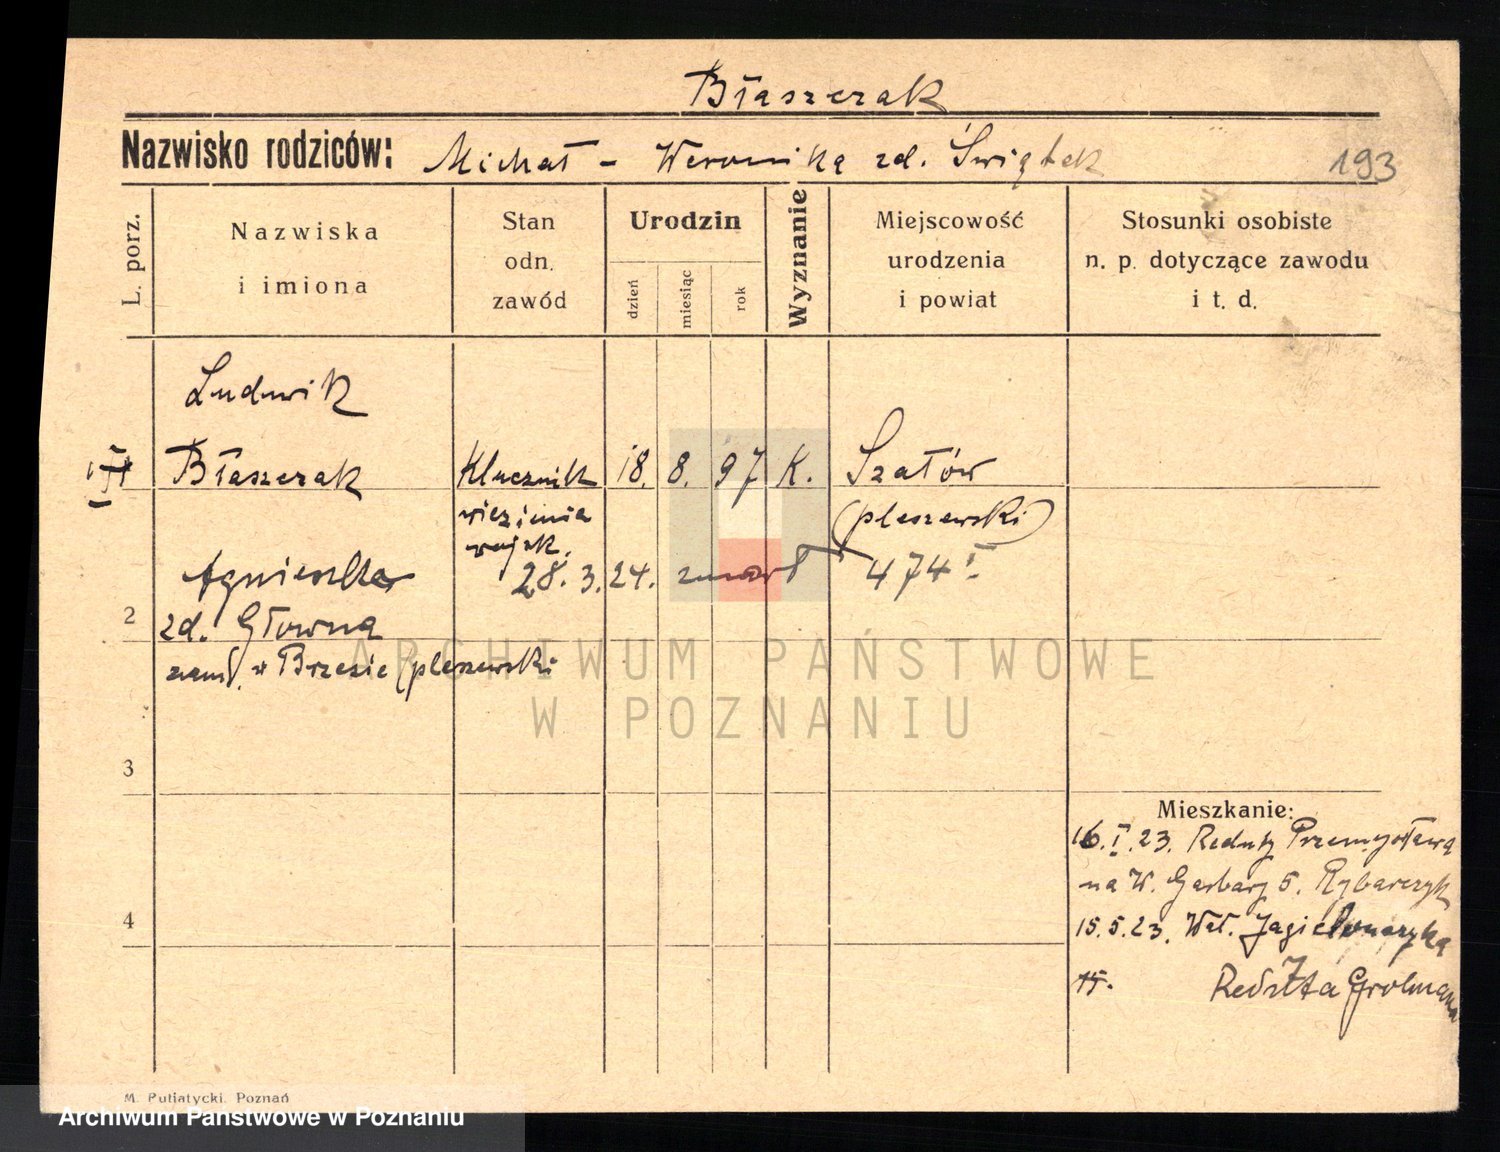 Błaszczak
Nazwisko rodziców: Michał - Weronika zd. Świątek
193
L. porz.
Nazwiska
i imiona
Stan
odn.
zawód
Urodzin
dzień
miesiąc
rok
Wyznanie
Miejscowość
urodzenia
i powiat
Stosunki osobiste
n. p. dotyczące zawodu
i t. d.
Ludwik
Błaszczak
Klucznik
więzienia
wojsk.
18. 8. 97 K.
Szałów
(pleszewski)
28. 3. 24. zmarł 474 I
Agnieszka
2
zd. Główna
zam. w Brzezie (pleszewski
3
4
Mieszkanie:
16. I. 23. Reduty Przemysława
na W. Garbary 5. Rybarczyk
15. 5. 23. Wał. Jagiellończyka
15. Reduta Grolmana
M. Putiatycki. Poznań
ARCHIWUM PAŃSTWOWE
W POZNANIU
Archiwum Państwowe w Poznaniu